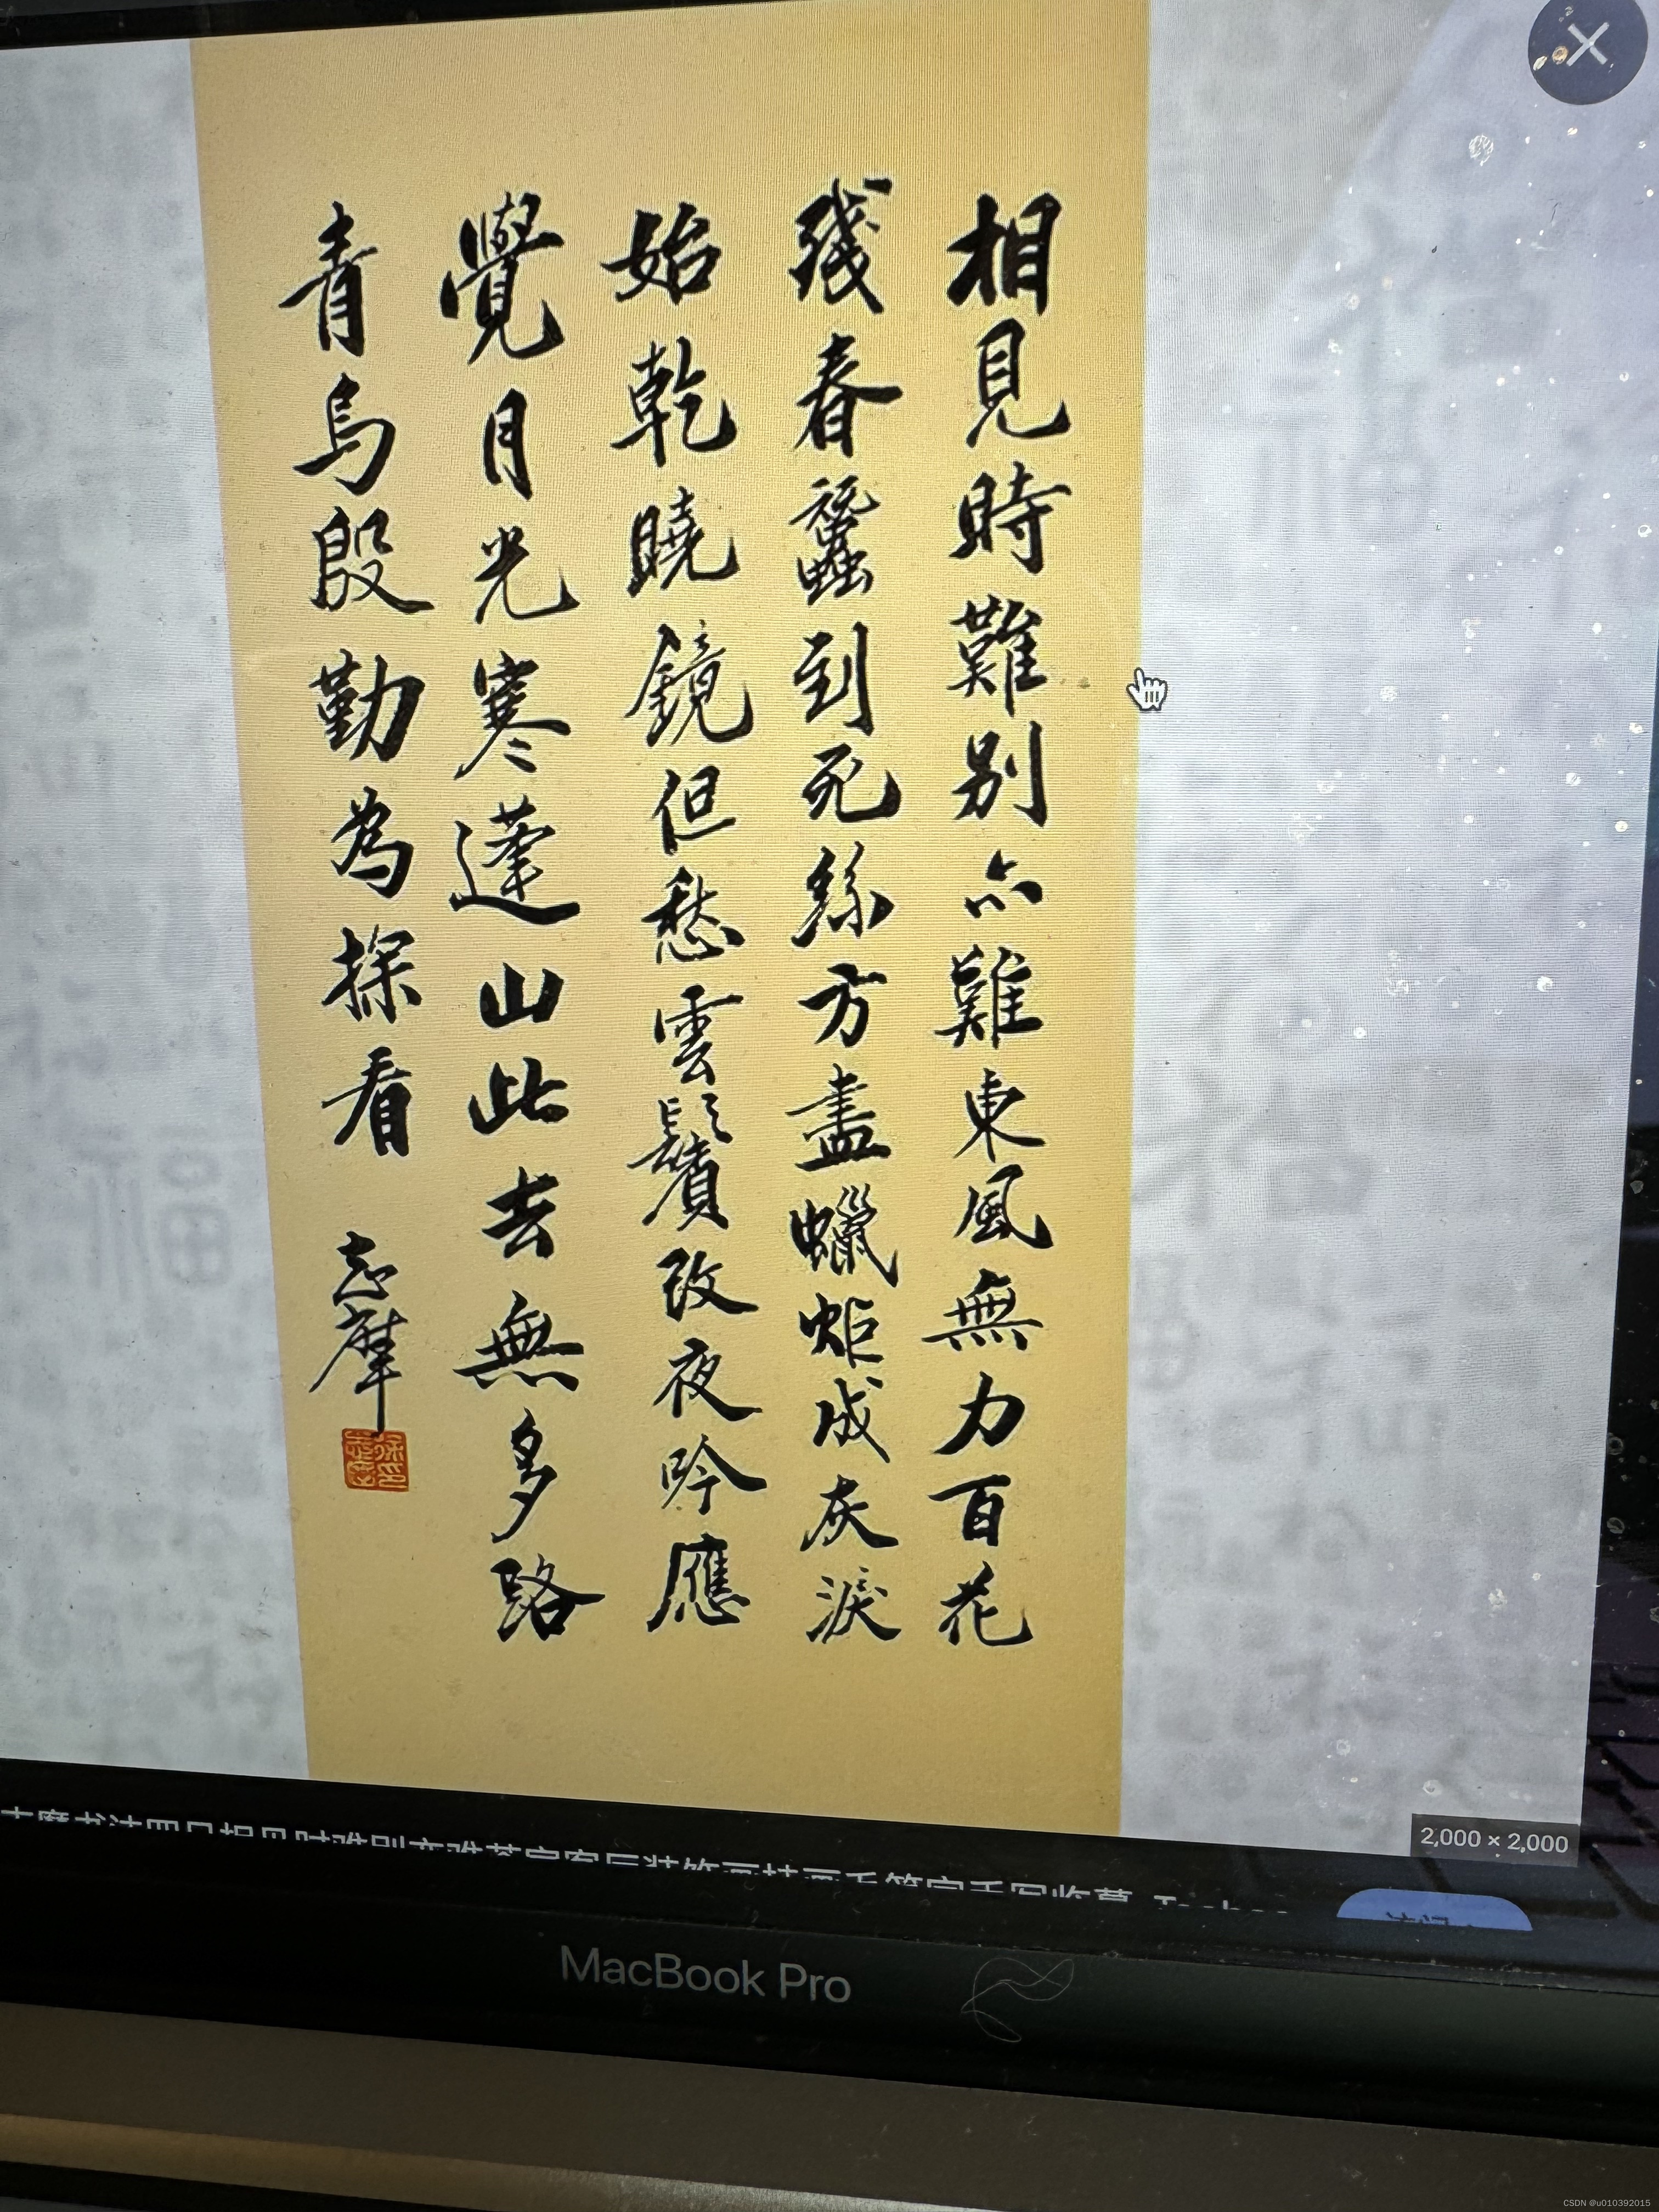 相見時難別亦難東風無力百花
殘春蠶到死絲方盡蠟炬成灰淚
始乾曉鏡但愁雲鬢改夜吟應
覺月光寒蓬山此去無多路
青鳥殷勤為探看
志摩
2,000 × 2,000
MacBook Pro
CSDN @u010392015